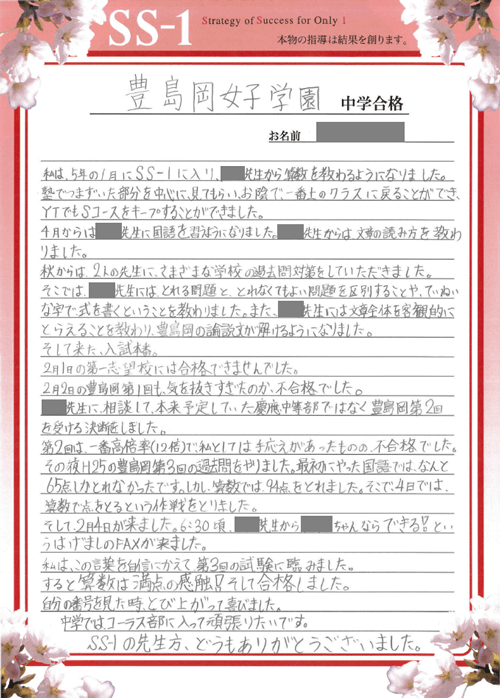 SS-1
Strategy of Success for Only 1
本物の指導は結果を創ります。
豊島岡女子学園 中学合格
お名前
私は、5年の1月にSS-1に入り、先生から算数を教わるようになりました。
塾でつまずいた部分を中心に、見てもらい、お陰で、一番上のクラスに戻ることができ、
YTでもSコースをキープすることができました。
4月からは先生に国語を習うようになりました。先生からは、文章の読み方を教わ
りました。
秋からは、2人の先生に、さまざまな学校の過去問対策をしていただきました。
そこでは、先生には、とれる問題と、とれなくてもよい問題を区別することや、ていねい
な字で式を書くということを教わりました。また、先生には文章全体を客観的に
とらえることを教わり、豊島岡の論説文が解けるようになりました。
そして来た、入試本番。
2月1日の第一志望校には合格できませんでした。
2月2日の豊島岡第1回も、気を抜きすぎたのか、不合格でした。
先生に、相談して、本来予定していた慶應中等部ではなく豊島岡第2回
を受ける決断をしました。
第2回は、一番高倍率(12倍)で、私としては手応えがあったものの、不合格でした。
その夜、H25の豊島岡第3回の過去問をやりました。最初にやった国語では、なんと
65点しかとれなかったです。しかし、算数では、94点をとれました。そこで、4日では、
算数で点をとるという作戦をとりました。
そして、2月4日が来ました。6:30頃、先生からちゃんならできる!!とい
うはげましのFAXが来ました。
私は、この言葉を自信にかえて、第3回の試験に臨みました。
すると算数は満点の感触!!そして合格しました。
自分の番号を見た時、とび上がって喜びました。
中学ではコーラス部に入って頑張りたいです。
SS-1の先生方、どうもありがとうございました。